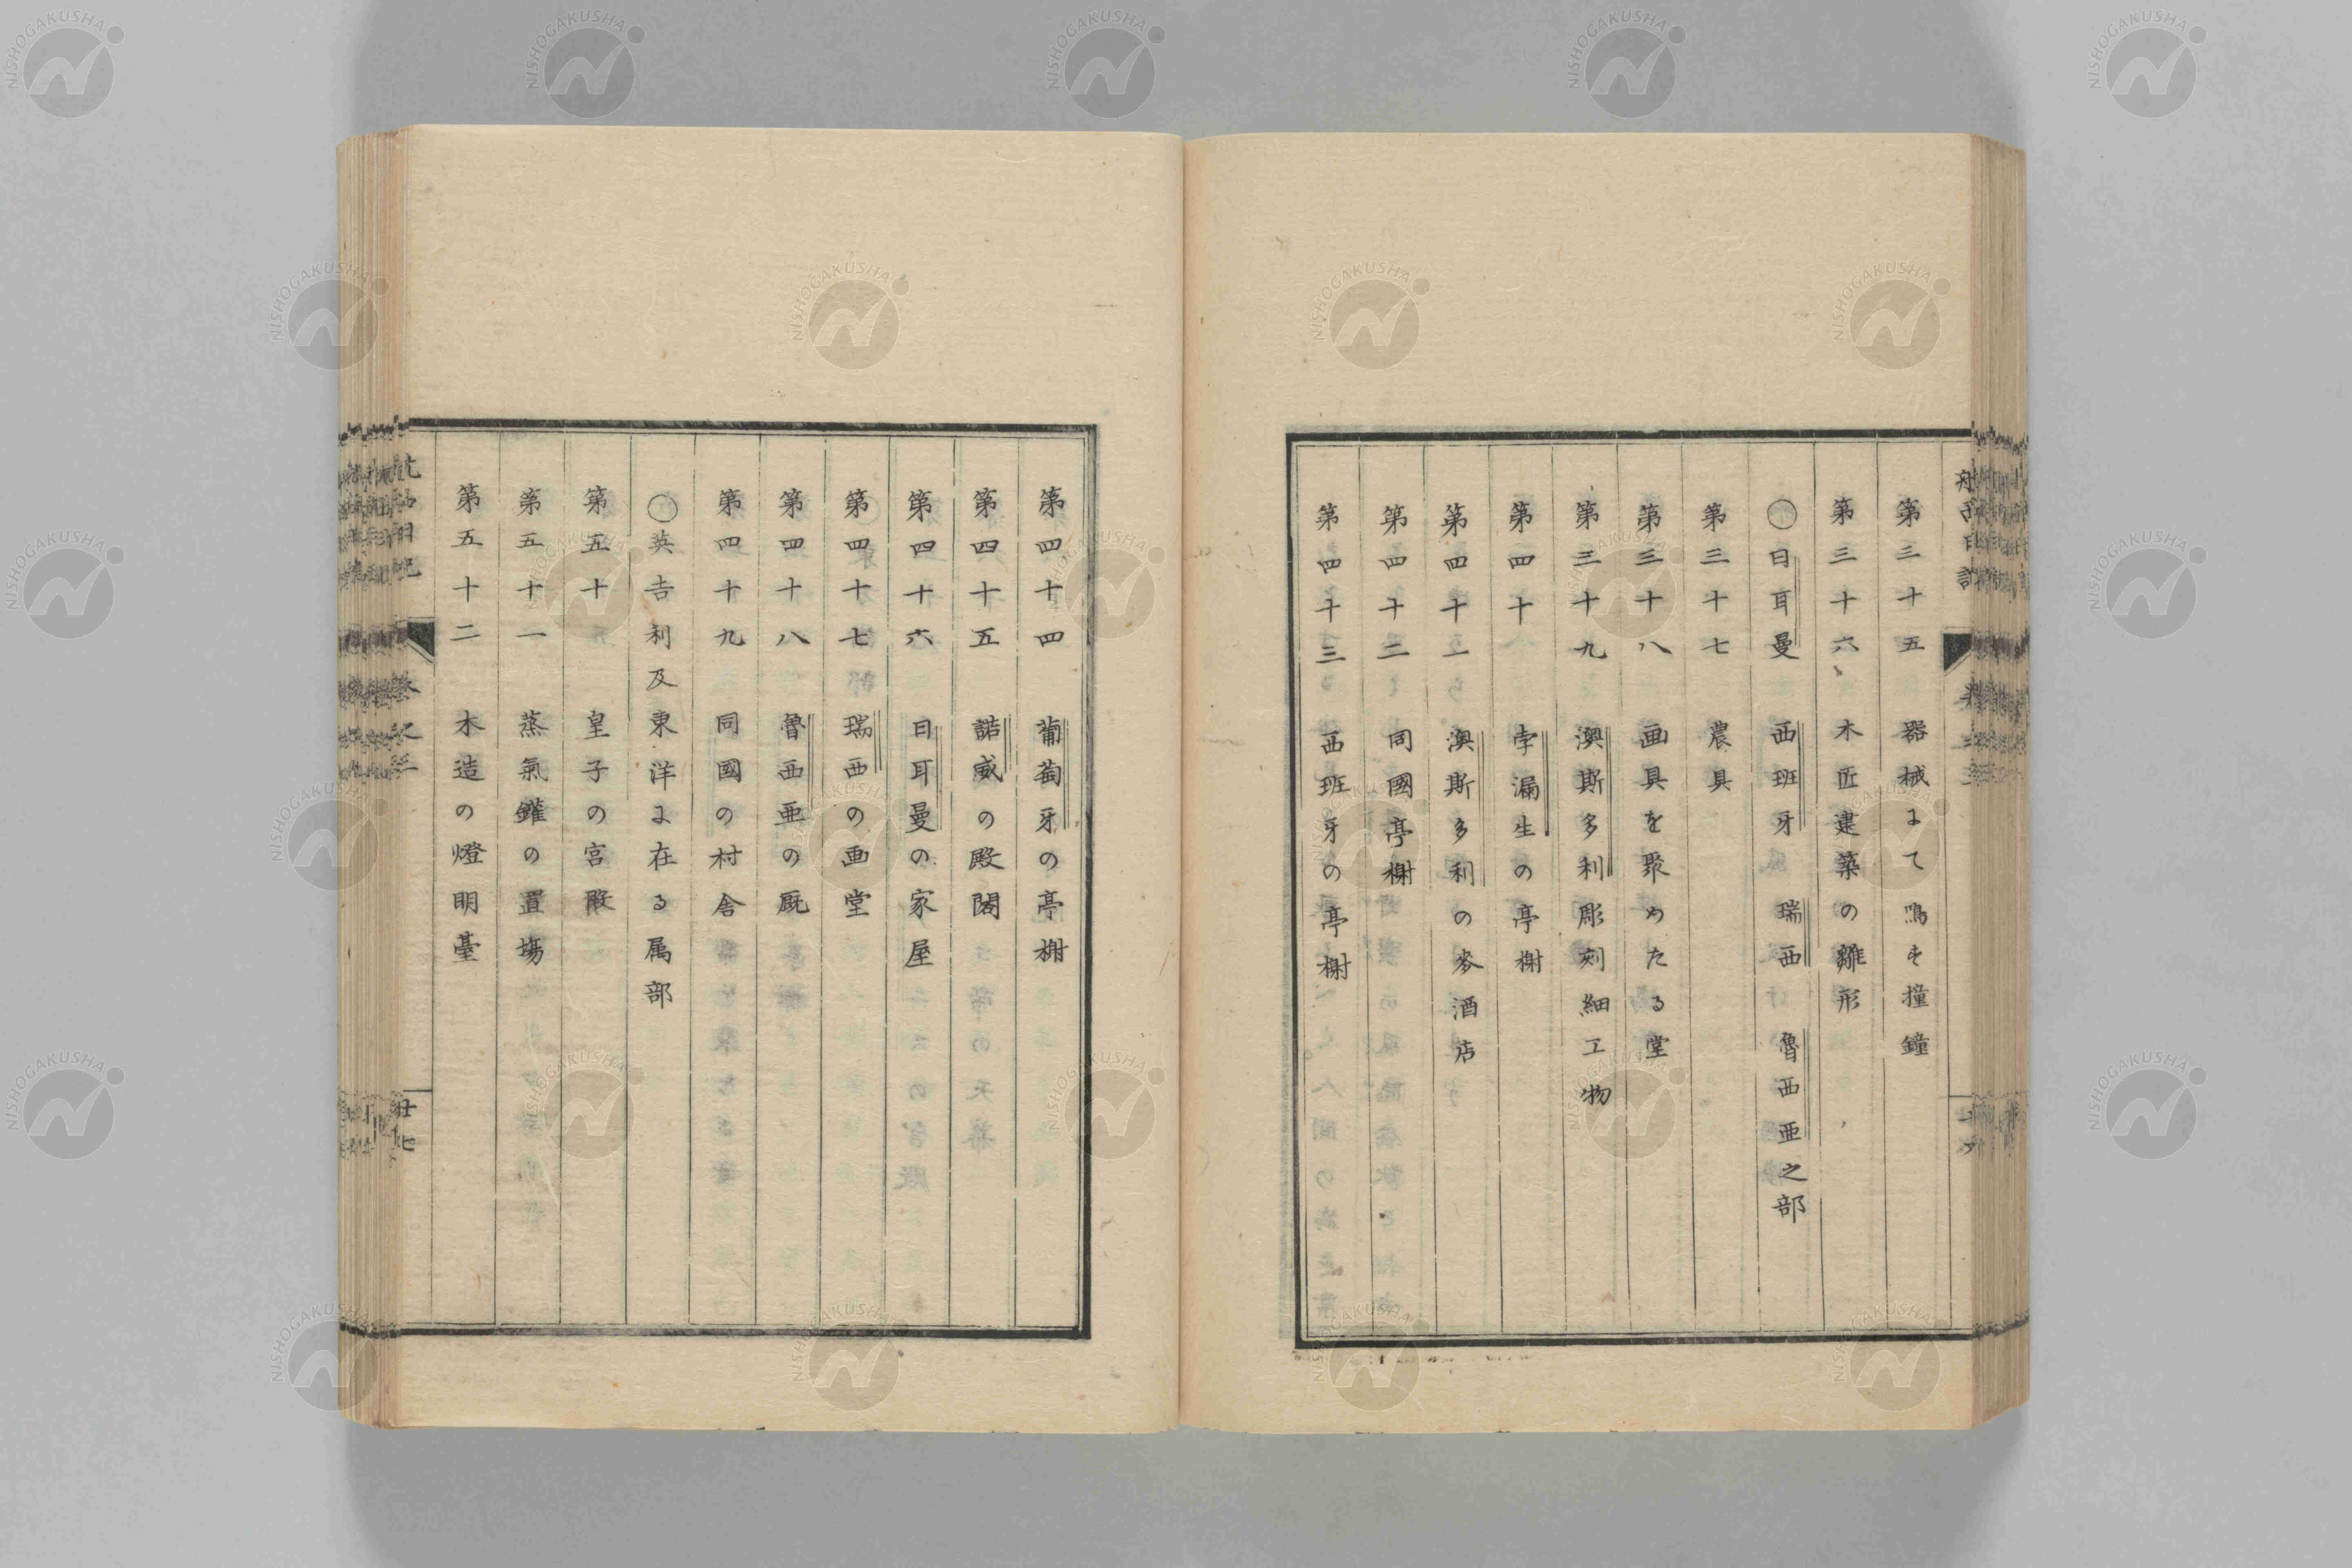 第三十五　器械にて鳴す撞鐘
第三十六　木匠建築の雛形
○日耳曼　西班牙　瑞西　魯西亜之部
第三十七　農具
第三十八　画具を聚めたる堂
第三十九　澳斯多利彫刻細工物
第四十　孛漏生の亭榭
第四十一　澳斯多利の麦酒店
第四十二　同國亭榭
第四十三　西班牙の亭榭
第四十四　葡萄牙の亭榭
第四十五　諾威の殿閣
第四十六　日耳曼の家屋
第四十七　瑞西の画堂
第四十八　魯西亜の厩
第四十九　同國の村舎
○英吉利及東洋に在る属部
第五十　皇子の宮殿
第五十一　蒸氣鑵の置場
第五十二　木造の燈明臺
航西日記　巻之三　廿七
NISHOGAKUSHA